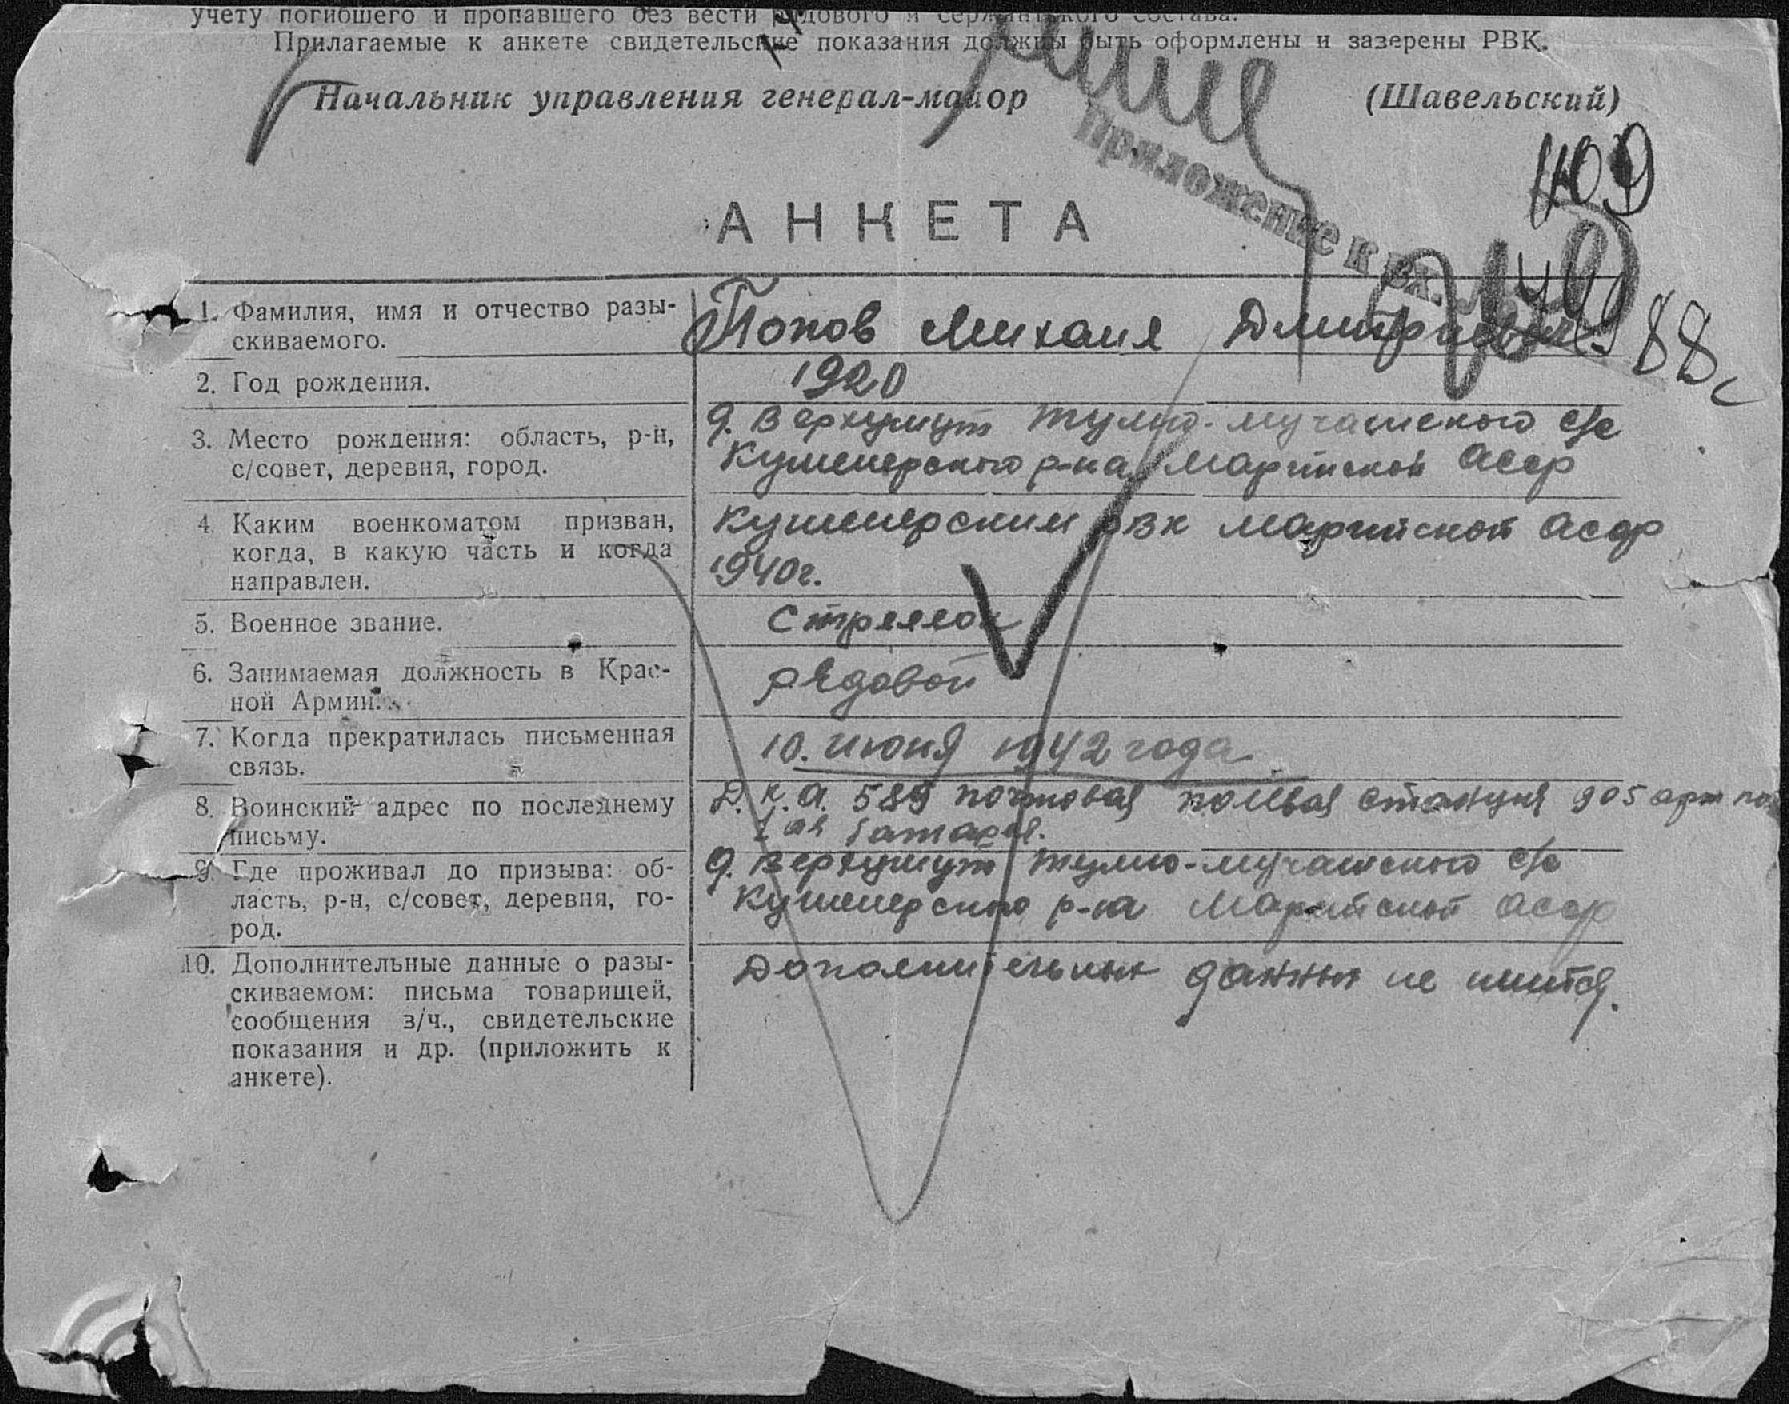 учету погибшего и пропавшего без вести рядового и сержантского состава.
Прилагаемые к анкете свидетельские показания должны быть оформлены и заверены РВК.
Начальник управления генерал-майор (Шавельский)
Приложение к вх. №
109
88с
АНКЕТА
1. Фамилия, имя и отчество разы-
скиваемого.
Попов Михаил Дмитриевич
2. Год рождения.
1920
3. Место рождения: область, р-н,
с/совет, деревня, город.
д. Верхушут Тумью-мучашского с/с
Куженерского р-на Марийской АССР
4. Каким военкоматом призван,
когда, в какую часть и когда
направлен.
Куженерским РВК Марийской АССР
1940г.
5. Военное звание.
Стрелок
6. Занимаемая должность в Крас-
ной Армии.
рядовой
7. Когда прекратилась письменная
связь.
10. июня 1942 года.
8. Воинский адрес по последнему
письму.
Д.К.А. 589 почтовая полевая станция 905 арт по
батарея.
9. Где проживал до призыва: об-
ласть, р-н, с/совет, деревня, го-
род.
д. Верхушут Тумью-мучашского с/с
Куженерского р-на Марийской АССР
10. Дополнительные данные о разы-
скиваемом: письма товарищей,
сообщения з/ч., свидетельские
показания и др. (приложить к
анкете).
Дополнительных данных не имеется.